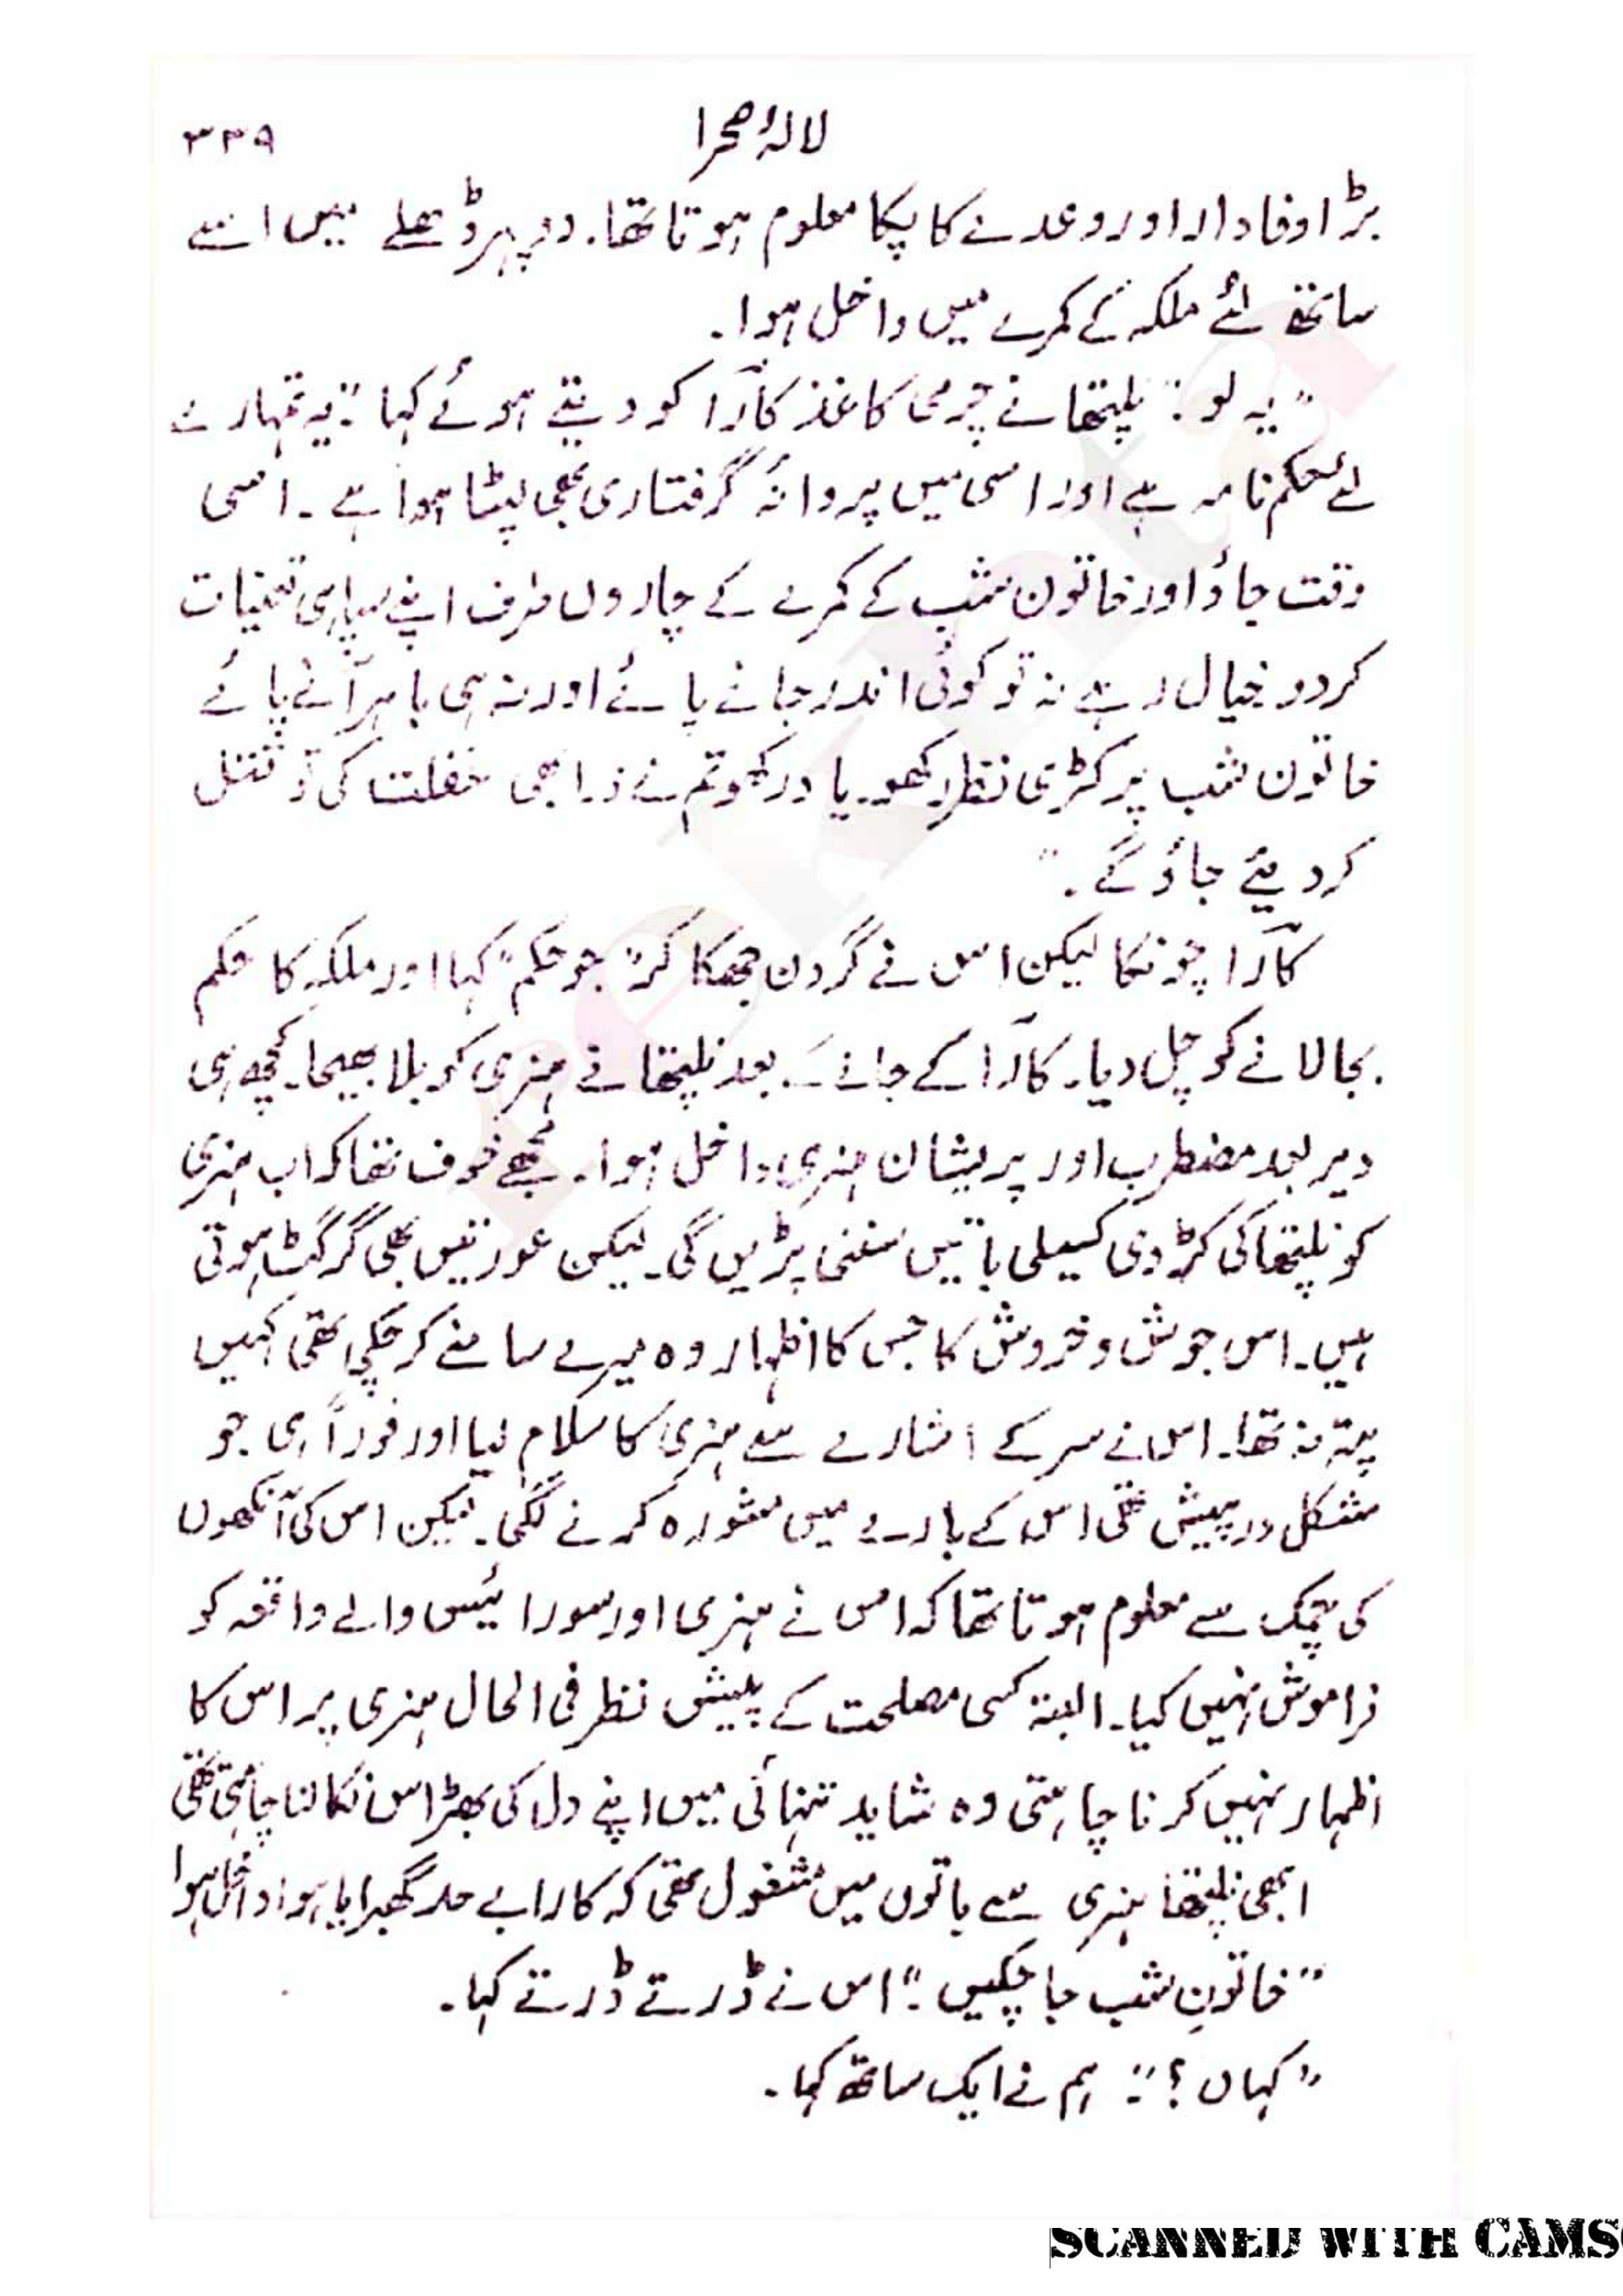 لالۂ صحرا
۳۳۹
بڑا وفادار اور وعدے کا پکا معلوم ہوتا تھا۔ دوپہر ڈھلے میں اسے
ساتھ لئے ملکہ کے کمرے میں داخل ہوا۔
"یہ لو۔" نلیتھا نے چرمی کاغذ کآرا کو دیتے ہوئے کہا "یہ تمہارے
لئے حکم نامہ ہے اور اسی میں پروانۂ گرفتاری بھی لپٹا ہوا ہے۔ اسی
وقت جاؤ اور خاتون شب کے کمرے کے چاروں طرف اپنے سپاہی تعنیات
کر دو خیال رہے نہ تو کوئی اندر جانے پائے اور نہ ہی باہر آنے پائے
خاتون شب پر کڑی نظر رکھو۔ یاد رکھو تم نے ذرا بھی غفلت کی تو قتل
کر دیئے جاؤ گے۔"
کآرا چونکا لیکن اس نے گردن جھکا کر "جو حکم" کہا اور ملکہ کا حکم
بجا لانے کو چل دیا۔ کآرا کے جانے کے بعد نلیتھا نے ہنری کو بلا بھیجا۔ کچھ ہی
دیر بعد مضطرب اور پریشان ہنری داخل ہوا۔ مجھے خوف تھا کہ اب ہنری
کو نلیتھا کی کڑوی کسیلی باتیں سننی پڑیں گی۔ لیکن عورتیں بھی گرگٹ ہوتی
ہیں۔ اس جوش و خروش کا جس کا اظہار وہ میرے سامنے کر چکی تھی کہیں
پتہ نہ تھا۔ اس نے سر کے اشارے سے ہنری کا سلام لیا اور فوراً ہی جو
مشکل درپیش تھی اس کے بارے میں مشورہ کرنے لگی۔ لیکن اس کی آنکھوں
کی چمک سے معلوم ہوتا تھا کہ اس نے ہنری اور سورائیس والے واقعہ کو
فراموش نہیں کیا۔ البتہ کسی مصلحت کے پیش نظر فی الحال ہنری پر اس کا
اظہار نہیں کرنا چاہتی وہ شاید تنہائی میں اپنے دل کی بھڑاس نکالنا چاہتی تھی
ابھی نلیتھا ہنری سے باتوں میں مشغول تھی کہ کارا بے حد گھبرایا ہوا داخل ہوا
"خاتونِ شب جا چکیں۔" اس نے ڈرتے ڈرتے کہا۔
"کہاں؟" ہم نے ایک ساتھ کہا۔
SCANNED WITH CAMS